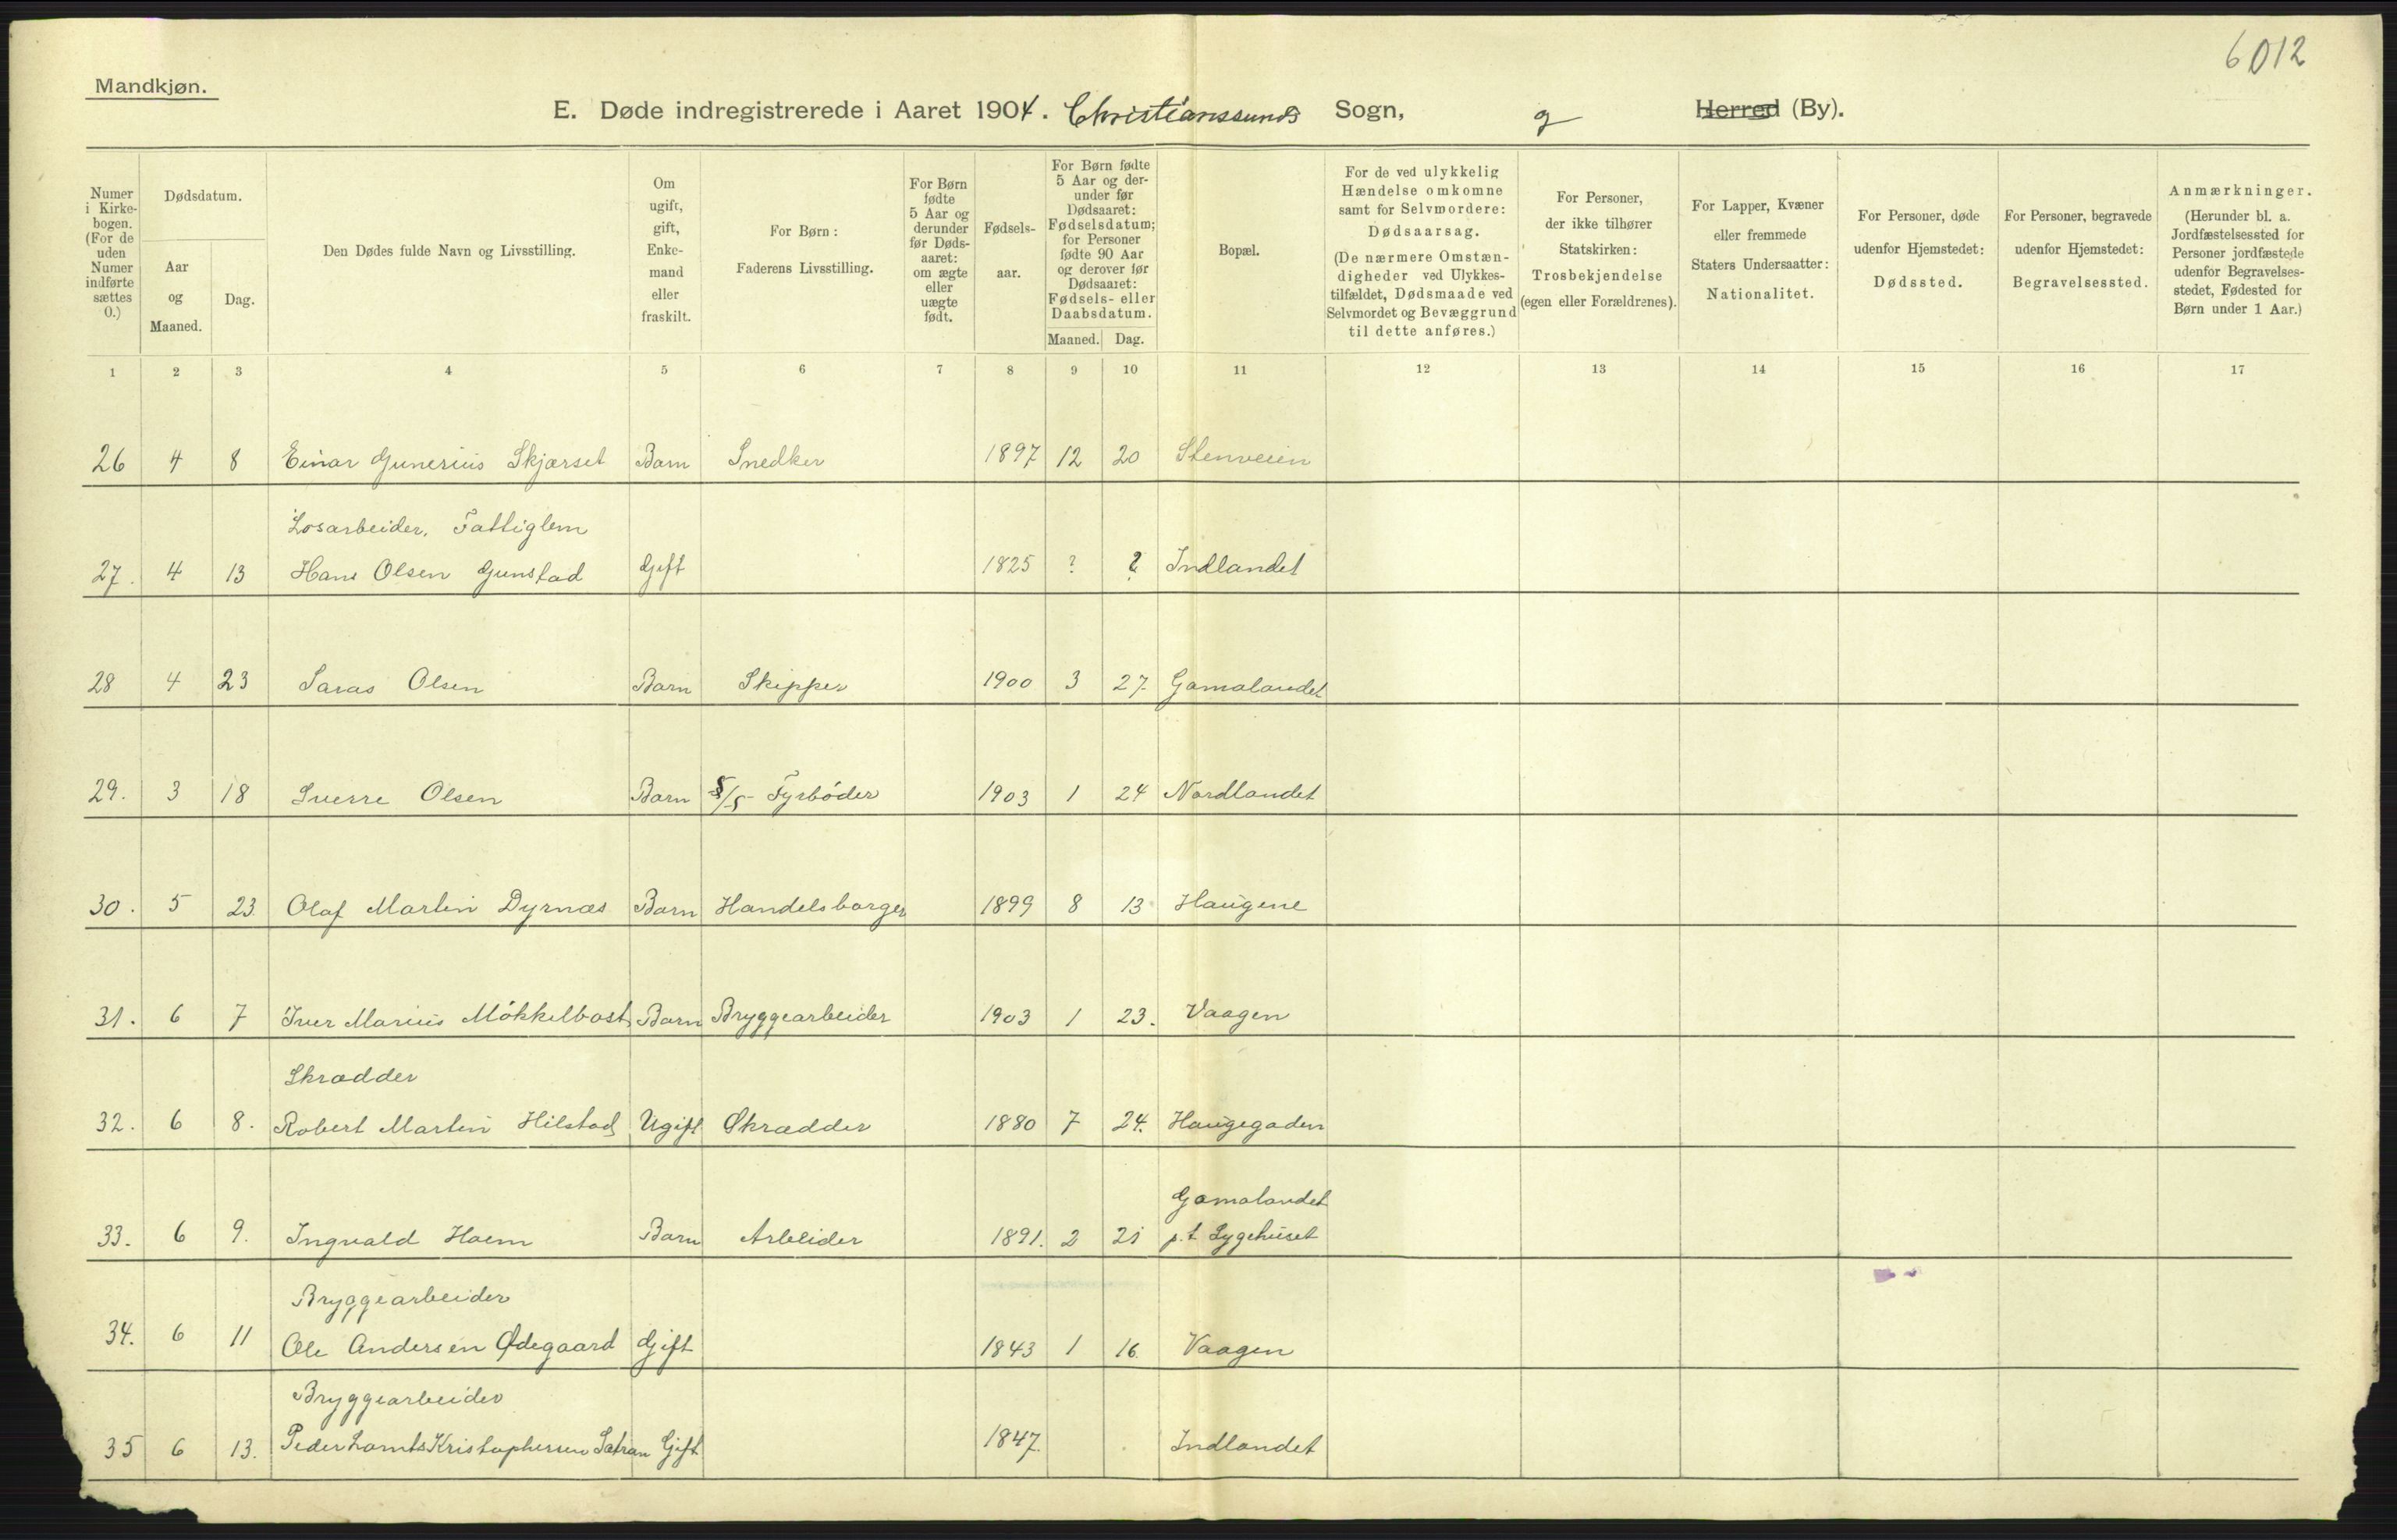 6012
Mandkjøn.
E. Døde indregistrerede i Aaret 1904. Christianssunds Sogn, g Herred (By).
Numer i Kirke-bogen. (For de uden Numer indførte sættes 0.)
Dødsdatum.
Aar og Maaned.
Dag.
Den Dødes fulde Navn og Livsstilling.
Om ugift, gift, Enke-mand eller fraskilt.
For Børn: Faderens Livsstilling.
For Børn fødte 5 Aar og derunder før Døds-aaret: om ægte eller uægte født.
Fødsels-aar.
For Børn fødte 5 Aar og der-under før Dødsaaret: Fødselsdatum; for Personer fødte 90 Aar og derover før Dødsaaret: Fødsels- eller Daabsdatum.
Maaned. Dag.
Bopæl.
For de ved ulykkelig Hændelse omkomne samt for Selvmordere: Dødsaarsag. (De nærmere Omstæn-digheder ved Ulykkes-tilfældet, Dødsmaade ved Selvmordet og Bevæggrund til dette anføres.)
For Personer, der ikke tilhører Statskirken: Trosbekjendelse (egen eller Forældrenes).
For Lapper, Kvæner eller fremmede Staters Undersaatter: Nationalitet.
For Personer, døde udenfor Hjemstedet: Dødssted.
For Personer, begravede udenfor Hjemstedet: Begravelsessted.
Anmærkninger. (Herunder bl. a. Jordfæstelsessted for Personer jordfæstede udenfor Begravelses-stedet, Fødested for Børn under 1 Aar.)
1 2 3 4 5 6 7 8 9 10 11 12 13 14 15 16 17
26 4 8 Einar Gunerius Skjærset Barn Snedker 1897 12 20 Stenveien
Losarbeider, Fattiglem
27. 4 13 Hans Olsen Gunstad Gift 1825 ? ? Indlandet
28 4 23 Saras Olsen Barn Skipper 1900 3 27. Gomalandet
29. 3 18 Sverre Olsen Barn S/S Fyrbóder 1903 1 24 Nordlandet
30. 5 23. Olaf Martin Dyrnæs Barn Handelsborger 1899 8 13 Haugene
31. 6 7 Iver Marius Mókkelbost Barn Bryggearbeider 1903 1 23. Vaagen
Skrædder
32. 6 8. Robert Martin Hilstad Ugift Skrædder 1880 7 24. Haugegaden
Gomalandet
33. 6 9. Ingvald Hoem Barn Arbeider 1891. 2 21 p.t Sygehuset
Bryggearbeider
34. 6 11 Ole Andersen Ødegaard Gift 1843 1 16. Vaagen
Bryggearbeider
35 6 13. Peder Kristophersen Gift 1847. Indlandet